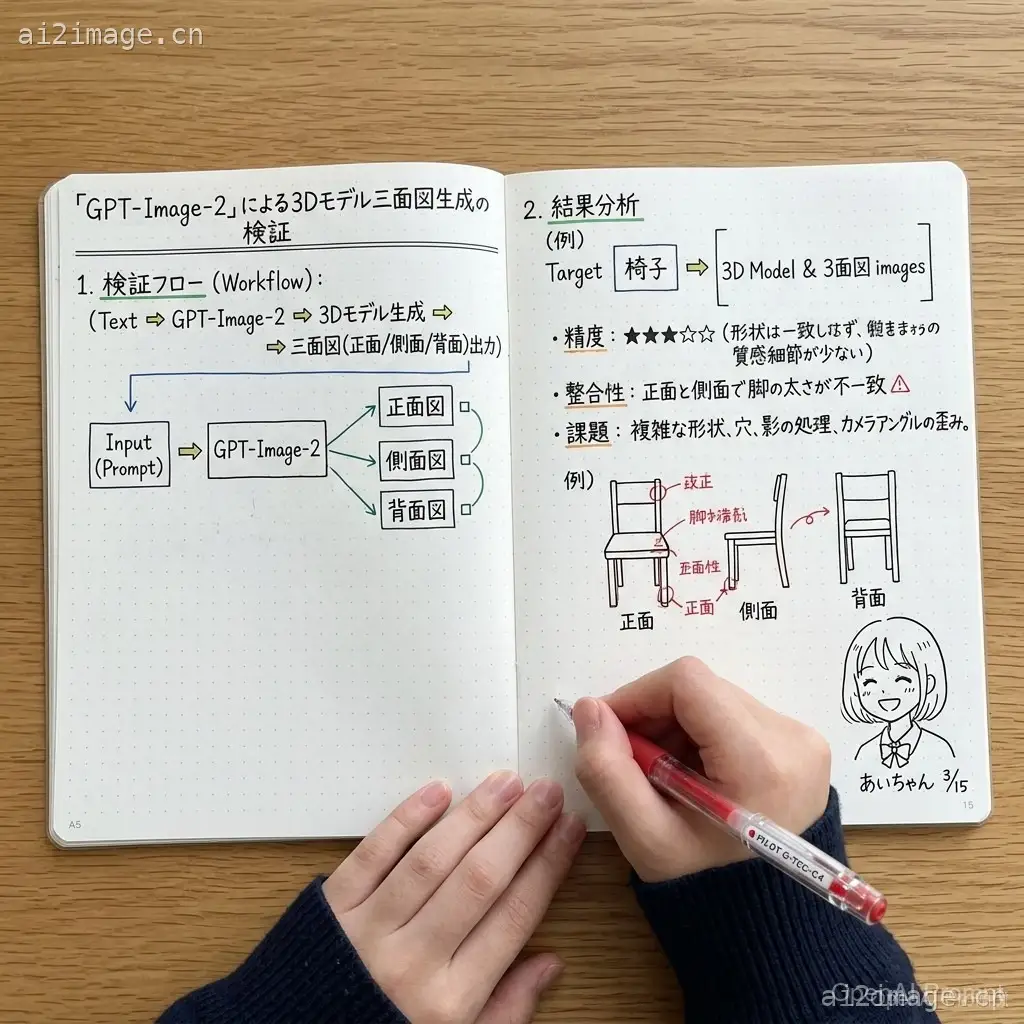 ai2image.cn
「GPT-Image-2」による3Dモデル三面図生成の
検証
1. 検証フロー (Workflow):
(Text ⇨ GPT-Image-2 ⇨ 3Dモデル生成 ⇨
⇨ 三面図(正面/側面/背面)出力)
Input
(Prompt)
⇨ GPT-Image-2
正面図
側面図
背面図
A5
2. 結果分析
(例)
Target 椅子 ⇨ [3D Model & 3面図 images]
・精度: ★★★☆☆ (形状は一致しはず、
質感細節が少ない)
・整合性: 正面と側面で脚の太さが不一致⚠
・課題: 複雑な形状、穴、影の処理、カメラアングルの歪み。
例)
改正
面性
正面
正面
側面
背面
あいちゃん 3/15
15
PILOT G-TEC-C4
ai2image.cn